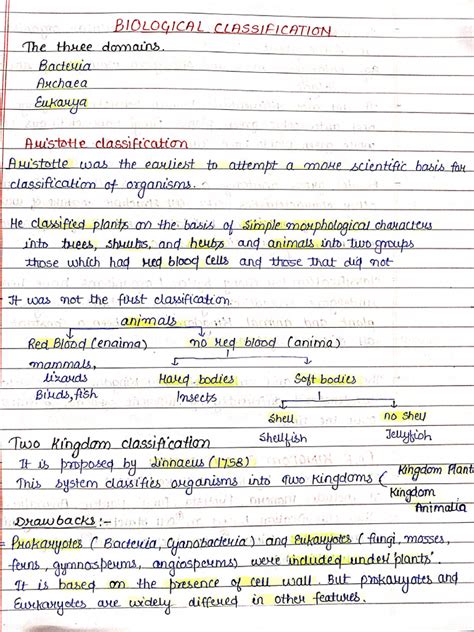 BIOLOGICAL CLASSIFICATION
The three domains.
Bacteria
Archaea
Eukarya
Aristotle classification
Aristotle was the earliest to attempt a more scientific basis for
classification of organisms.
He classified plants on the basis of simple morphological characters
into trees, shrubs, and herbs and animals into two groups
those which had red blood cells and those that did not
It was not the first classification.
animals
Red Blood (enaima) no red blood (anima)
mammals,
lizards
Birds, fish
Hard bodies Soft bodies
Insects
Shell no shell
Shellfish Jellyfish
Two Kingdom classification
It is proposed by Linnaeus (1758)
This system classifies organisms into Two Kingdoms ( Kingdom Plant
Kingdom
Animalia
Drawbacks :-
Prokaryotes ( Bacteria, Cyanobacteria ) and Eukaryotes ( fungi, mosses,
ferns, gymnosperms, angiosperms) were included under 'plants'.
It is based on the presence of cell wall. But prokaryotes and
Eurkaryotes are widely differed in other features.